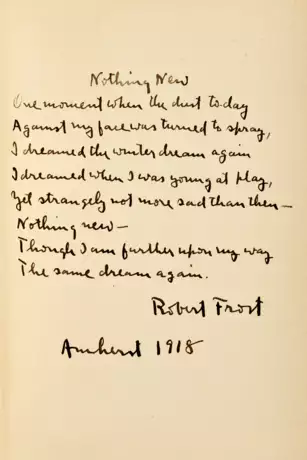 Nothing New
One moment when the dust to-day
Against my face was turned to spray,
I dreamed the winter dream again
I dreamed when I was young at play,
Yet strangely not more sad than then—
Nothing new—
Though I am further upon my way
The same dream again.
Robert Frost
Amherst 1918